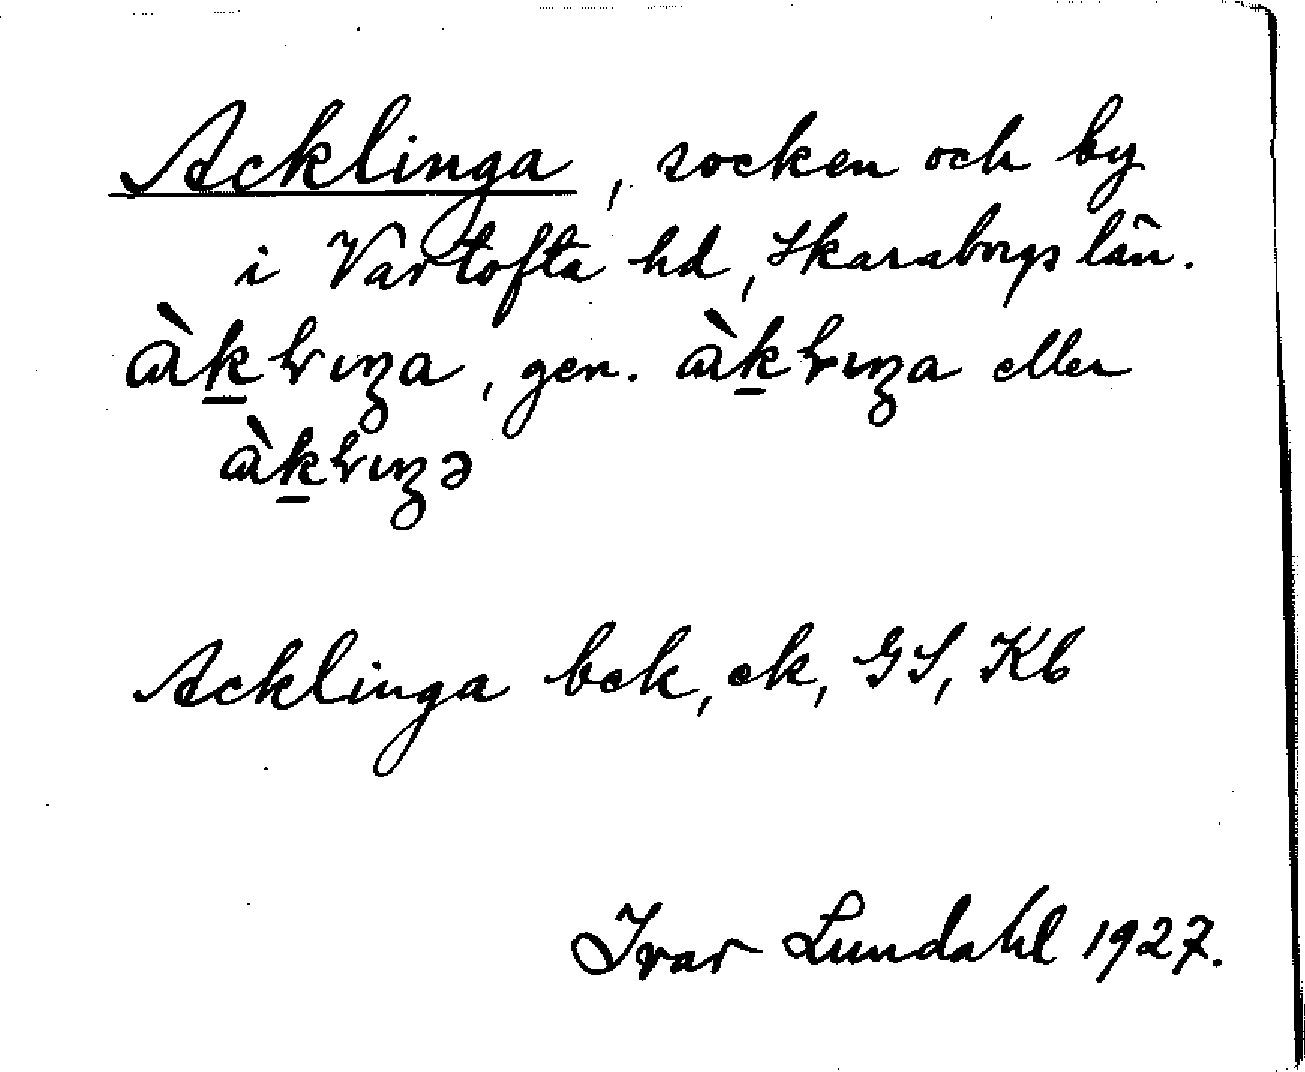 Acklinga, socken och by
i Vartofta hd, Skaraborgs län.
gen. eller
Acklinga bek, ek, GS, Kb
Ivar Lundahl 1927.